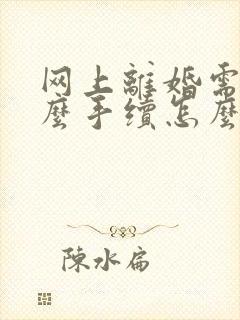 网上離婚需
麼手續怎麼
陳水扁